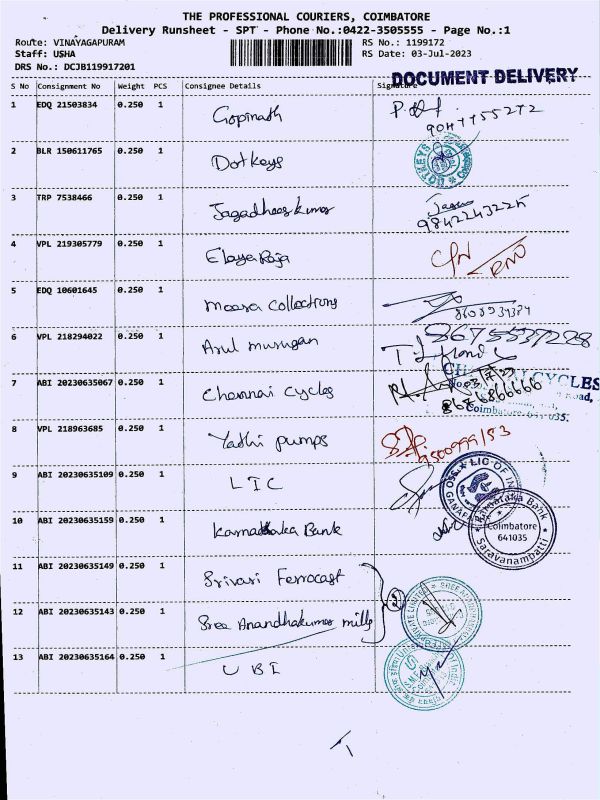 THE PROFESSIONAL COURIERS, COIMBATORE
Delivery Runsheet - SPT - Phone No.:0422-3505555 - Page No.:1
Route: VINAYAGAPURAM RS No.: 1199172
Staff: USHA RS Date: 03-Jul-2023
DRS No.: DCJB119917201
DOCUMENT DELIVERY
S No Consignment No Weight PCS Consignee Details Signature
1 EDQ 21503834 0.250 1 Gopinath
2 BLR 150611765 0.250 1 Dotkeys
DOTKEYS
3 TRP 7538466 0.250 1 Jagadheeskumar
9842243225
4 VPL 219305779 0.250 1 Elaya Raja
5 EDQ 10601645 0.250 1 Meera Collections
6 VPL 218294022 0.250 1 Arul murugan
7 ABI 20230635067 0.250 1 Chennai Cycles
CYCLES
Road,
Coimbatore-641 035.
8 VPL 218963685 0.250 1 Yathi pumps
9 ABI 20230635109 0.250 1 LIC
LIC OF
10 ABI 20230635159 0.250 1 Karnataka Bank
Karnataka Bank
Coimbatore
641035
Saravanampatti
11 ABI 20230635149 0.250 1 Srivari Ferrocast
2
12 ABI 20230635143 0.250 1 Sree Anandhakumar mills
PRIVATE LIMITED
13 ABI 20230635164 0.250 1 UBI